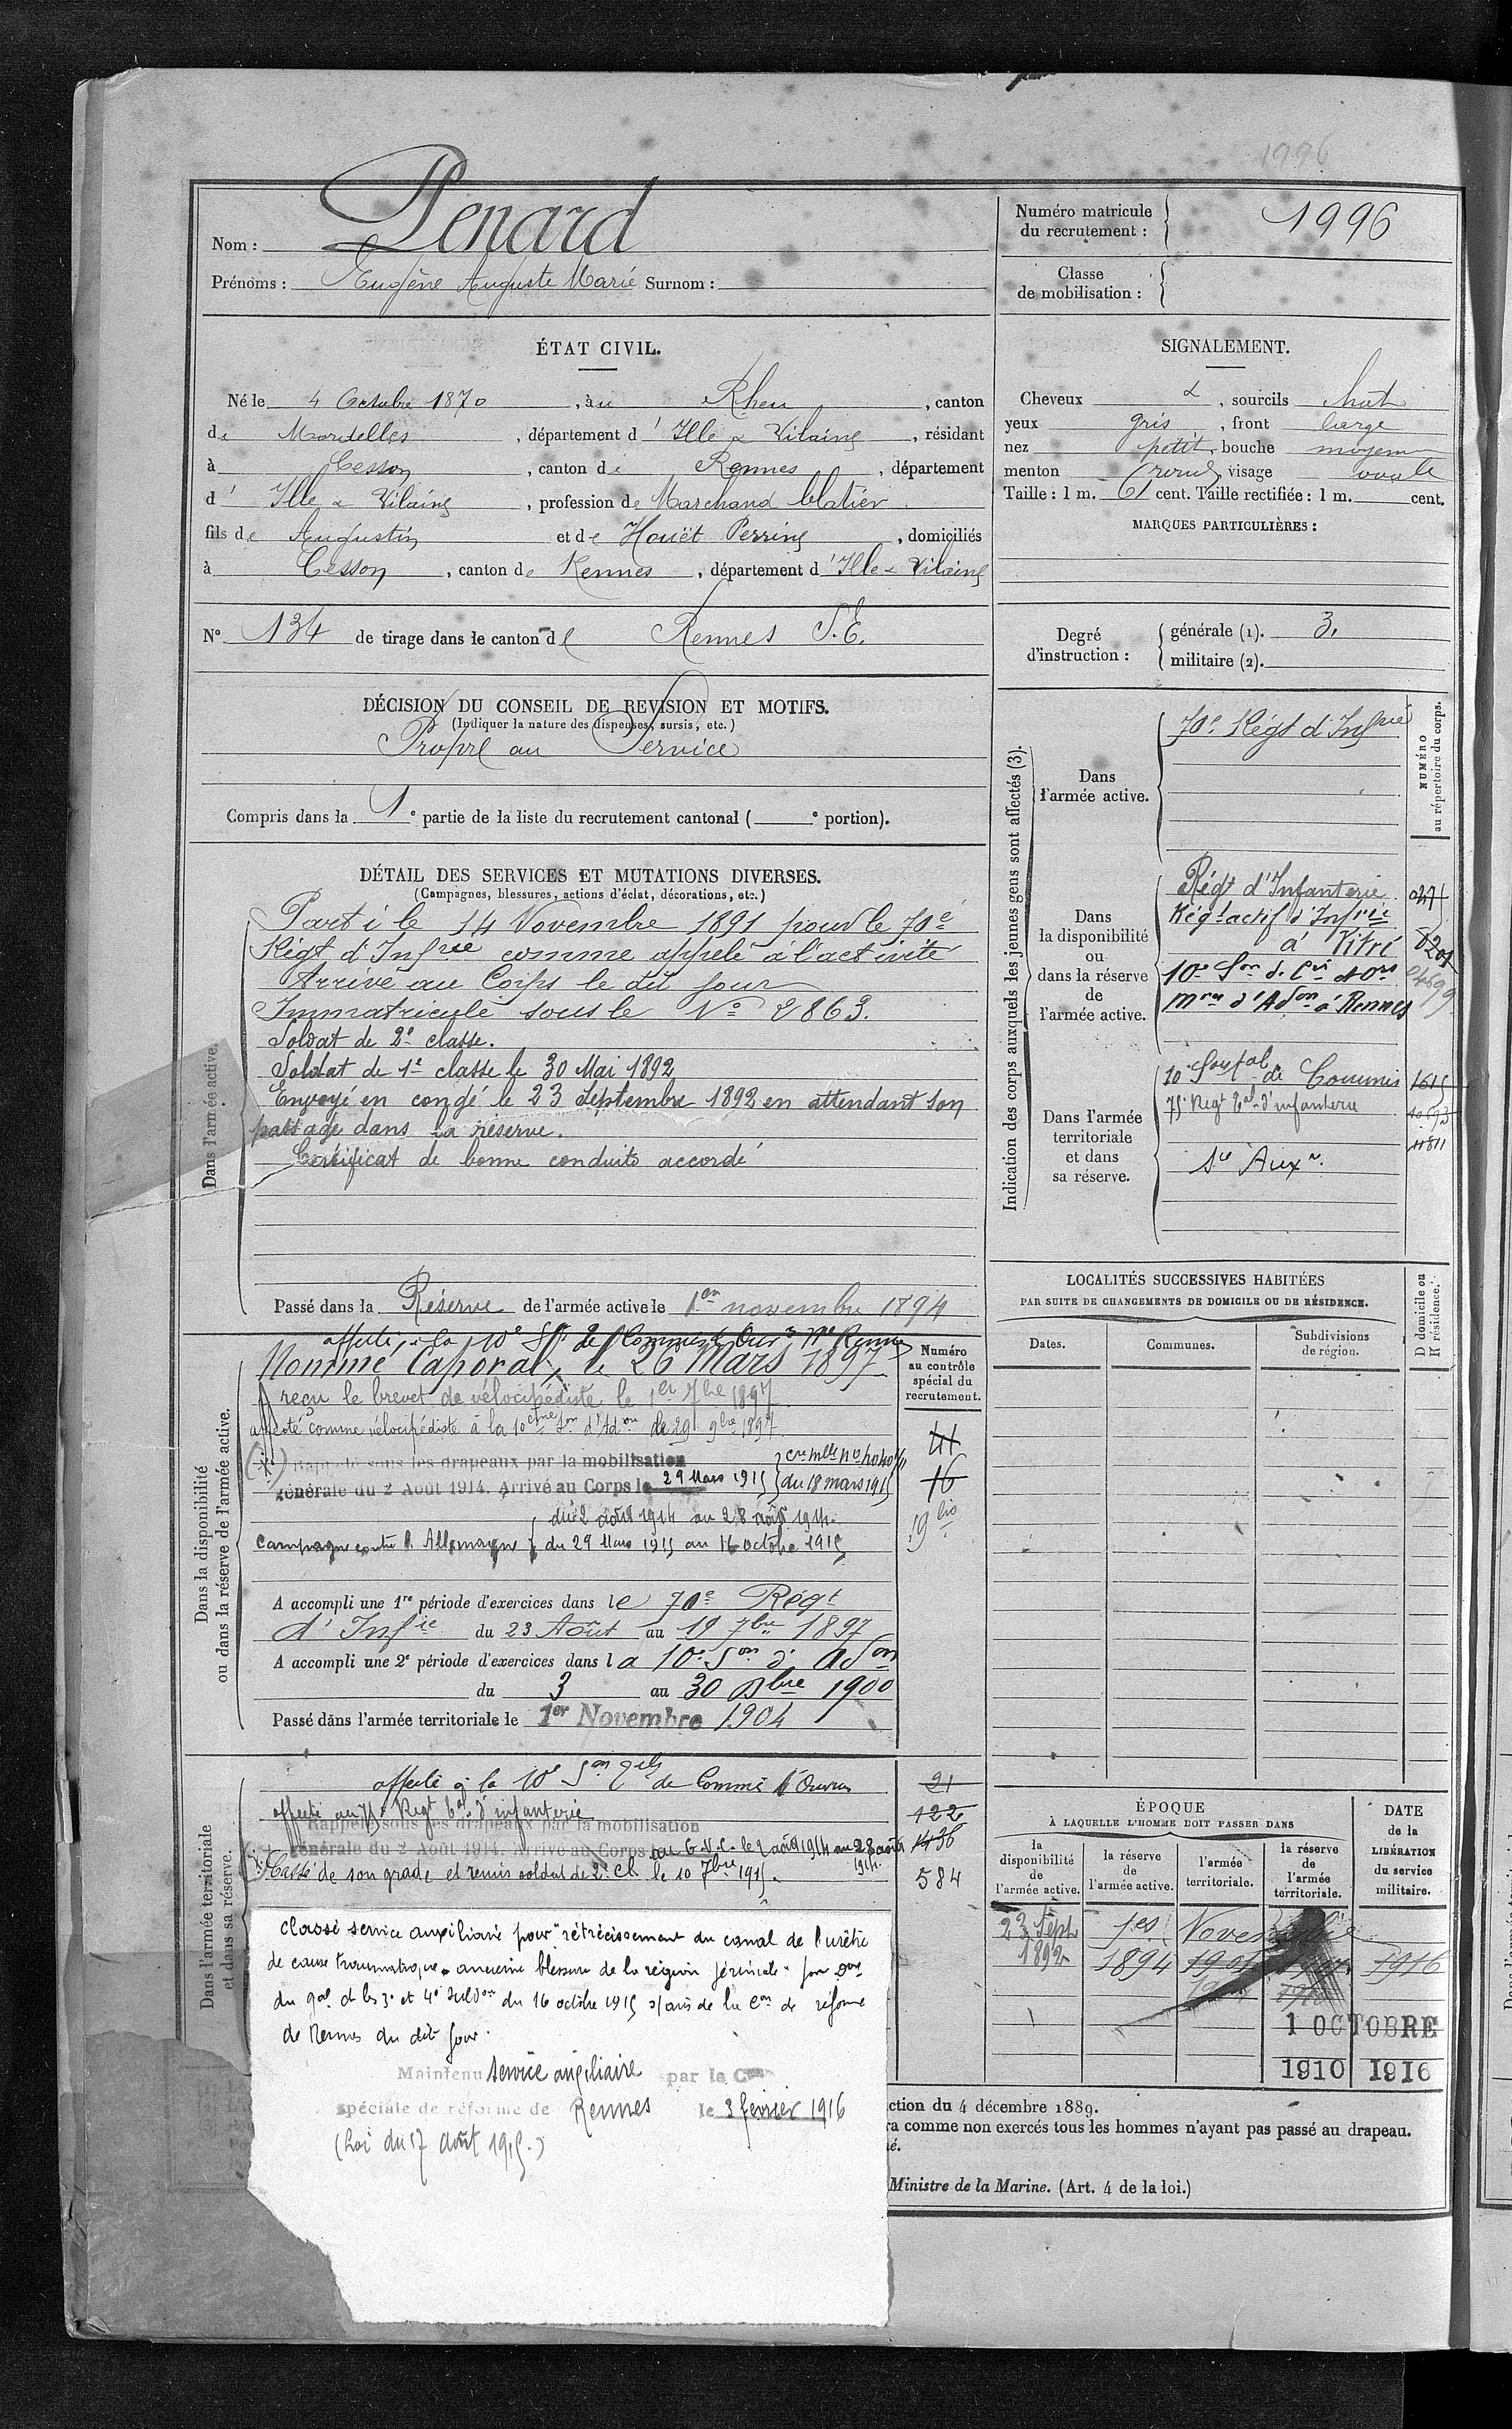 1996
Nom : Penard
Prénoms : Eugène Auguste Marie Surnom :
Numéro matricule du recrutement : 1996
Classe de mobilisation :
ÉTAT CIVIL.
Né le 4 Octobre 1870, à u Rheu, canton
de Mordelles, département d' Ille & Vilaine, résidant
à Cesson, canton de Rennes, département
d' Ille & Vilaine, profession de Marchand blatier
fils de Augustin et de Houët Perrine, domiciliés
à Cesson, canton de Rennes, département d' Ille & Vilaine
N° 134 de tirage dans le canton de Rennes S.E.
SIGNALEMENT.
Cheveux &, sourcils chat
yeux gris, front large
nez petit, bouche moyenne
menton rond, visage ovale
Taille : 1 m. 61 cent. Taille rectifiée : 1 m. cent.
MARQUES PARTICULIÈRES :
Degré d'instruction : générale (1). 3.
militaire (2).
DÉCISION DU CONSEIL DE REVISION ET MOTIFS.
(Indiquer la nature des dispenses, sursis, etc.)
Propre au Service
Compris dans la 1e partie de la liste du recrutement cantonal ( e portion).
DÉTAIL DES SERVICES ET MUTATIONS DIVERSES.
(Campagnes, blessures, actions d'éclat, décorations, etc.)
Dans l'armée active.
Parti le 14 Novembre 1891 pour le 70e
Régt d'Infrie comme appelé à l'activité
Arrivé au Corps le dit jour
Immatriculé sous le N° 2863.
Soldat de 2e classe.
Soldat de 1e classe le 30 Mai 1892
Envoyé en congé le 23 Septembre 1892 en attendant son
passage dans la réserve.
Certificat de bonne conduite accordé
Passé dans la Réserve de l'armée active le 1er novembre 1894
Dans la disponibilité
ou dans la réserve de l'armée active.
affecté à la 10e Son de Commis & Ouvrs Mre Rennes
Nommé Caporal, le 26 Mars 1897
A reçu le brevet de vélocipédiste le 1er 7bre 1897
affecté comme vélocipédiste à la 10eme Son d'Adon le 29 9bre 1897
(*) Rappelé sous les drapeaux par la mobilisation
générale du 2 Août 1914. Arrivé au Corps le 29 Mars 1915
du 18 mars 1915
du 2 août 1914 au 28 août 1914.
Campagne contre l'Allemagne du 29 Mars 1915 au 16 octobre 1915
A accompli une 1re période d'exercices dans le 70e Régt
d'Infie du 23 Août au 19 7bre 1897
A accompli une 2e période d'exercices dans la 10e Son d' Adon
du 3 au 30 1900
Passé dans l'armée territoriale le 1er Novembre 1904
Numéro
au contrôle
spécial du
recrutement.
41
16
19 bis
Dans l'armée territoriale
et dans sa réserve.
affecté à la 10e Son Tale de Commis & Ouvrs
affecté au 75e Regt Tal d'infanterie
Rappelé sous les drapeaux par la mobilisation
générale du 2 Août 1914. Arrivé au Corps au G.V.C. le 2 août 1914 au 28 août
1914.
Cassé de son grade et remis soldat de 2e cl. le 10 7bre 1915.
21
122
1436
584
classé service auxiliaire pour "rétrécissement du canal de l'urètre
de cause traumatique, ancienne blessure de la région périnéale" par Don
du gal ct les 3e et 4e Subdons du 16 octobre 1915 s/avis de la Con de réforme
de Rennes du dit jour.
Maintenu service auxiliaire par la Con
spéciale de réforme de Rennes le 3 février 1916
(Loi du 17 août 1915.)
Indication des corps auxquels les jeunes gens sont affectés (3).
NUMÉRO
au répertoire du corps.
Dans
l'armée active.
70e Régt d'Infrie
Dans
la disponibilité
ou
dans la réserve
de
l'armée active.
Régt d'Infanterie
Régt actif d'Infrie
à Vitré 8201
10e Son de Cis & Ors
Mres d'Adon à Rennes
Dans l'armée
territoriale
et dans
sa réserve.
10e Son Tale de Commis 1615
75e Regt Tal d'infanterie
11811
Sce Auxre.
LOCALITÉS SUCCESSIVES HABITÉES
PAR SUITE DE CHANGEMENTS DE DOMICILE OU DE RÉSIDENCE.
Dates. Communes. Subdivisions
de région.
D domicile ou
R résidence.
ÉPOQUE
À LAQUELLE L'HOMME DOIT PASSER DANS
la
disponibilité
de
l'armée active.
la réserve
de
l'armée active.
l'armée
territoriale.
la réserve
de
l'armée
territoriale.
DATE
de la
LIBÉRATION
du service
militaire.
23 Sept 1er Novembre
1892 1894 1904 1916
1 OCTOBRE
1910 1916
ction du 4 décembre 1889.
ra comme non exercés tous les hommes n'ayant pas passé au drapeau.
é.
Ministre de la Marine. (Art. 4 de la loi.)